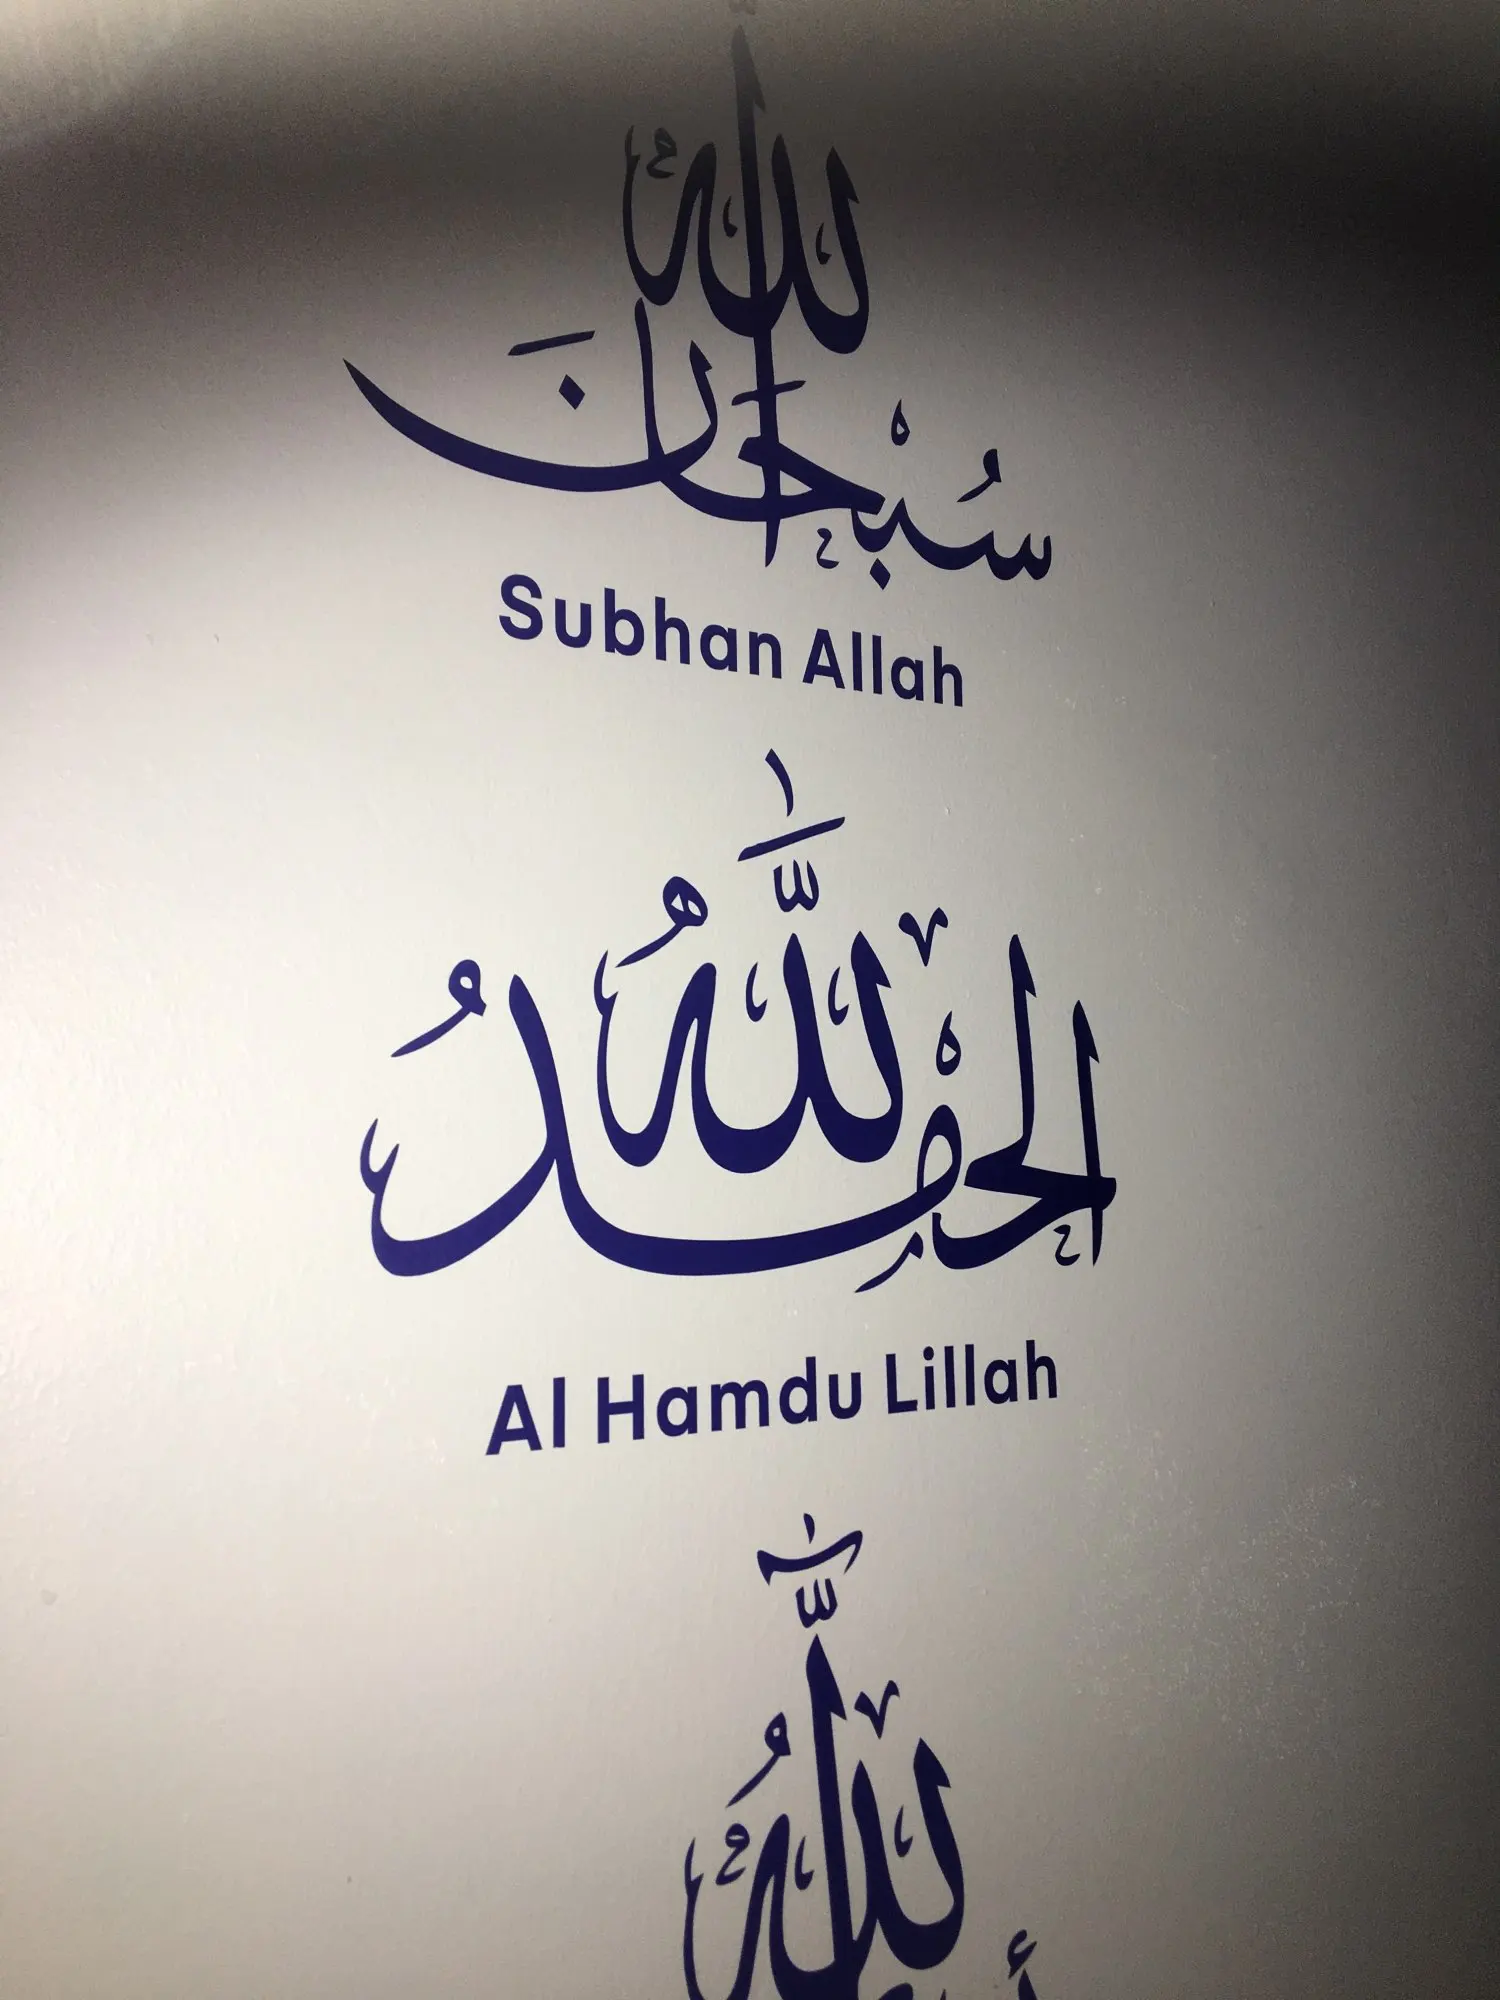 سُبْحَانَ الله
Subhan Allah
الحَمْدُ للهُ
Al Hamdu Lillah
اللهُ